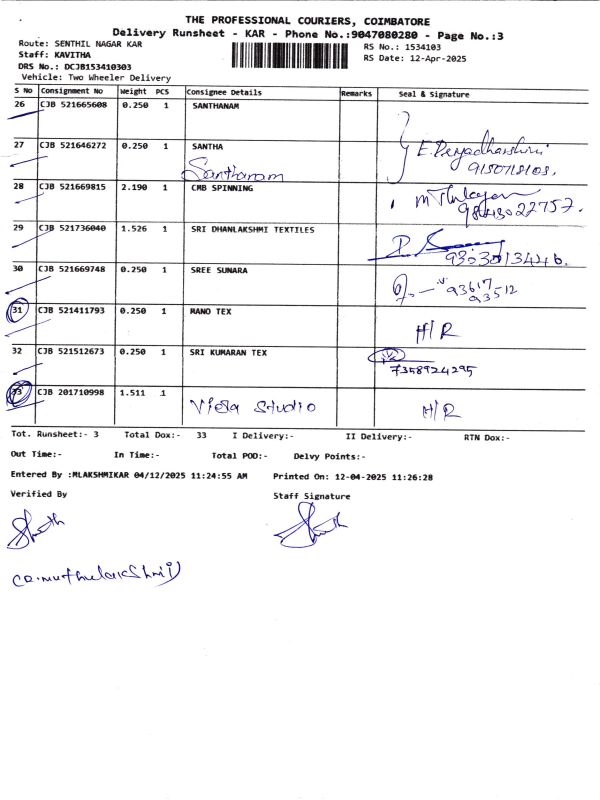 THE PROFESSIONAL COURIERS, COIMBATORE
Delivery Runsheet - KAR - Phone No.:9047080280 - Page No.:3
Route: SENTHIL NAGAR KAR
Staff: KAVITHA
DRS No.: DCJB153410303
Vehicle: Two Wheeler Delivery
RS No.: 1534103
RS Date: 12-Apr-2025
S No Consignment No Weight PCS Consignee Details Remarks Seal & Signature
26 CJB 521665608 0.250 1 SANTHANAM
27 CJB 521646272 0.250 1 SANTHA
Santhanam
E. Priyadharshini
9150718103.
28 CJB 521669815 2.190 1 CMB SPINNING
9843022757.
29 CJB 521736040 1.526 1 SRI DHANLAKSHMI TEXTILES
9303013446.
30 CJB 521669748 0.250 1 SREE SUNARA
93617
93512
31 CJB 521411793 0.250 1 MANO TEX
H/R
32 CJB 521512673 0.250 1 SRI KUMARAN TEX
7358924295
33 CJB 201710998 1.511 1
Viera Studio H/R
Tot. Runsheet:- 3 Total Dox:- 33 I Delivery:- II Delivery:- RTN Dox:-
Out Time:- In Time:- Total POD:- Delvy Points:-
Entered By :MLAKSHMIKAR 04/12/2025 11:24:55 AM Printed On: 12-04-2025 11:26:28
Verified By Staff Signature